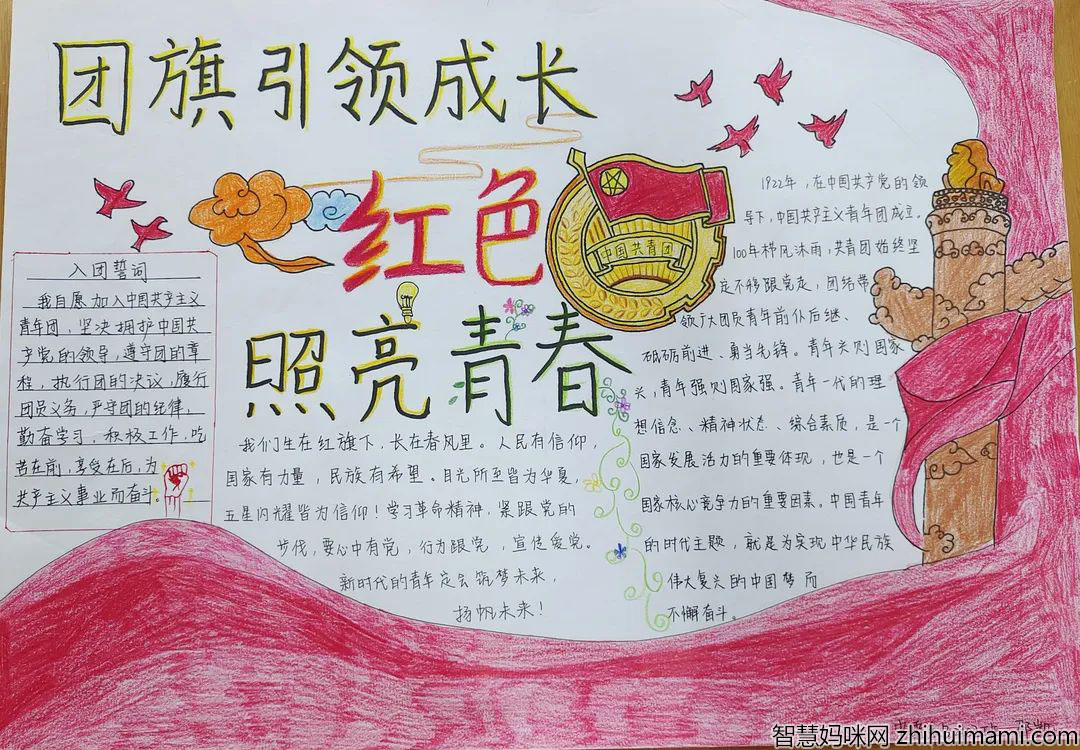 团旗引领成长
红色
照亮青春
中国共青团
入团誓词
我自愿加入中国共产主义
青年团，坚决拥护中国共
产党的领导，遵守团的章
程，执行团的决议，履行
团员义务，严守团的纪律，
勤奋学习，积极工作，吃
苦在前，享受在后，为
共产主义事业而奋斗。
我们生在红旗下，长在春风里。人民有信仰，
国家有力量，民族有希望。目光所至皆为华夏，
五星闪耀皆为信仰！学习革命精神，紧跟党的
步伐，要心中有党，行为跟党，宣传爱党。
新时代的青年定会筑梦未来，
扬帆未来！
1922年，在中国共产党的领
导下，中国共产主义青年团成立。
100年栉风沐雨，共青团始终坚
定不移跟党走，团结带
领广大团员青年前仆后继、
砥砺前进、勇当先锋。青年兴则国家
兴，青年强则国家强。青年一代的理
想信念、精神状态、综合素质，是一个
国家发展活力的重要体现，也是一个
国家核心竞争力的重要因素。中国青年
的时代主题，就是为实现中华民族
伟大复兴的中国梦而
不懈奋斗。
智慧妈咪网 zhihuimami.com